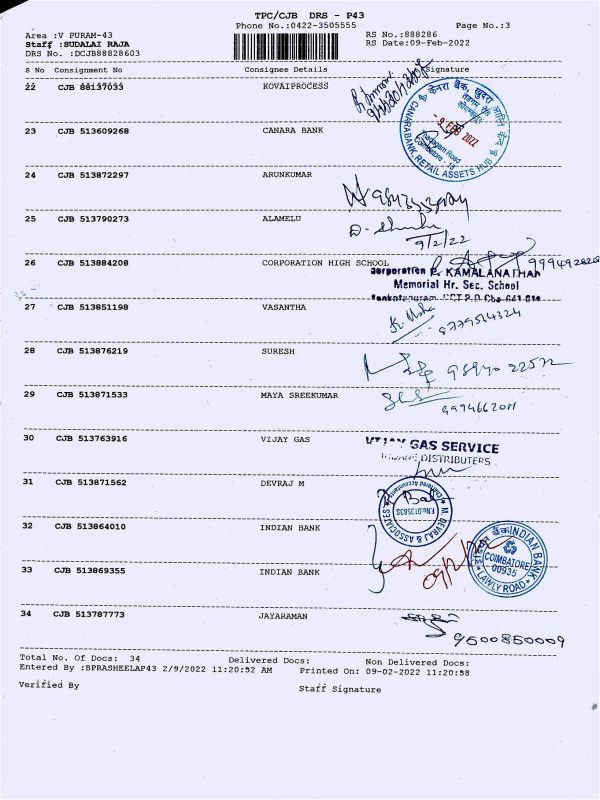 TPC/CJB DRS - P43
Phone No.:0422-3505555
Page No.:3
Area :V PURAM-43
RS No.:888286
Staff :SUDALAI RAJA
RS Date:09-Feb-2022
DRS No. :DCJB88828603
S No Consignment No Consignee Details Signature
22 CJB 88137033 KOVAIPROCESS
23 CJB 513609268 CANARA BANK
केनरा बैंक,
CANARA BANK, RETAIL ASSETS HUB
- 9 FEB 2022
Thadagam Road
Coimbatore - 13
24 CJB 513872297 ARUNKUMAR
25 CJB 513790273 ALAMELU
9/2/22
26 CJB 513884208 CORPORATION HIGH SCHOOL
Corporation P. KAMALANATHAN
Memorial Hr. Sec. School
27 CJB 513851198 VASANTHA
28 CJB 513876219 SURESH
29 CJB 513871533 MAYA SREEKUMAR
30 CJB 513763916 VIJAY GAS
VIJAY GAS SERVICE
INDANE DISTRIBUTERS
31 CJB 513871562 DEVRAJ M
M. DEVRAJ & ASSOCIATES
Chartered Accountants
32 CJB 513864010 INDIAN BANK
INDIAN BANK
COIMBATORE
00935
LAWLY ROAD
33 CJB 513869355 INDIAN BANK
34 CJB 513787773 JAYARAMAN
9500850009
Total No. Of Docs: 34 Delivered Docs: Non Delivered Docs:
Entered By :BPRASHEELAP43 2/9/2022 11:20:52 AM Printed On: 09-02-2022 11:20:58
Verified By Staff Signature